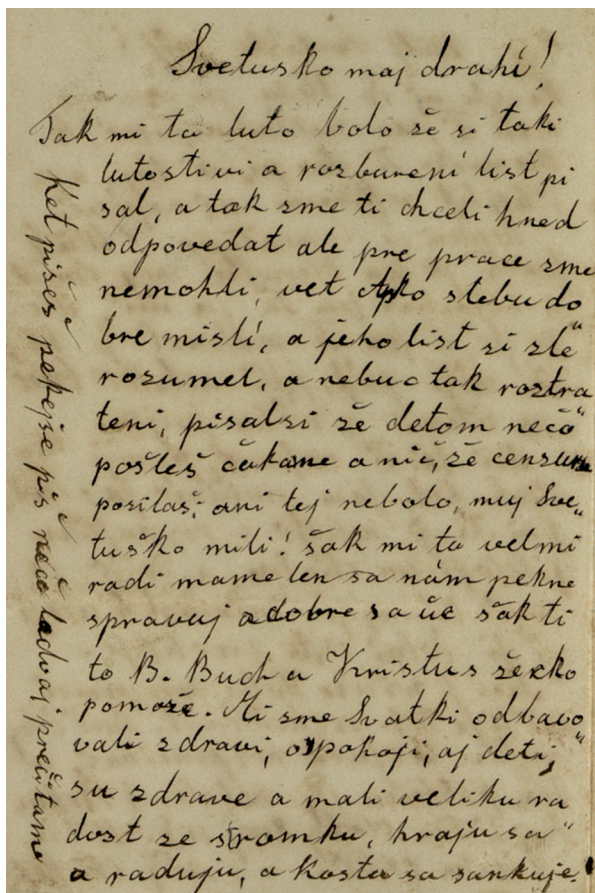 Svetusko moj drahí!
Tak mi ta luto bolo že si taki
lutostivi a rozburení list pi
sal, a tak sme ti chceli hned
odpovedat ale pre prace sme
nemohli, vet Apko stebu do
bre mislí, a jeho list si zle"
rozumel, a nebuc tak roztra
teni, pisalsi že detom nečo"
pošleš čakame a nič, že censuru
posilaš, ani tej nebolo, muj Sve"
tuško mili! šak mi ta velmi
radi mame len sa nám pekne
spravuj adobre sa uč šak ti
to B. Buch a Kristus žecko
pomože. Mi sme Svatki odbavo
vali zdravi, opokoji, aj deti,"
su zdrave a mali veliku ra
dost ze stromku, hraju sa"
a raduju, a Kosta sa sankuje.
Ket pišeš pekejše piš nečo ledvaj prečitame